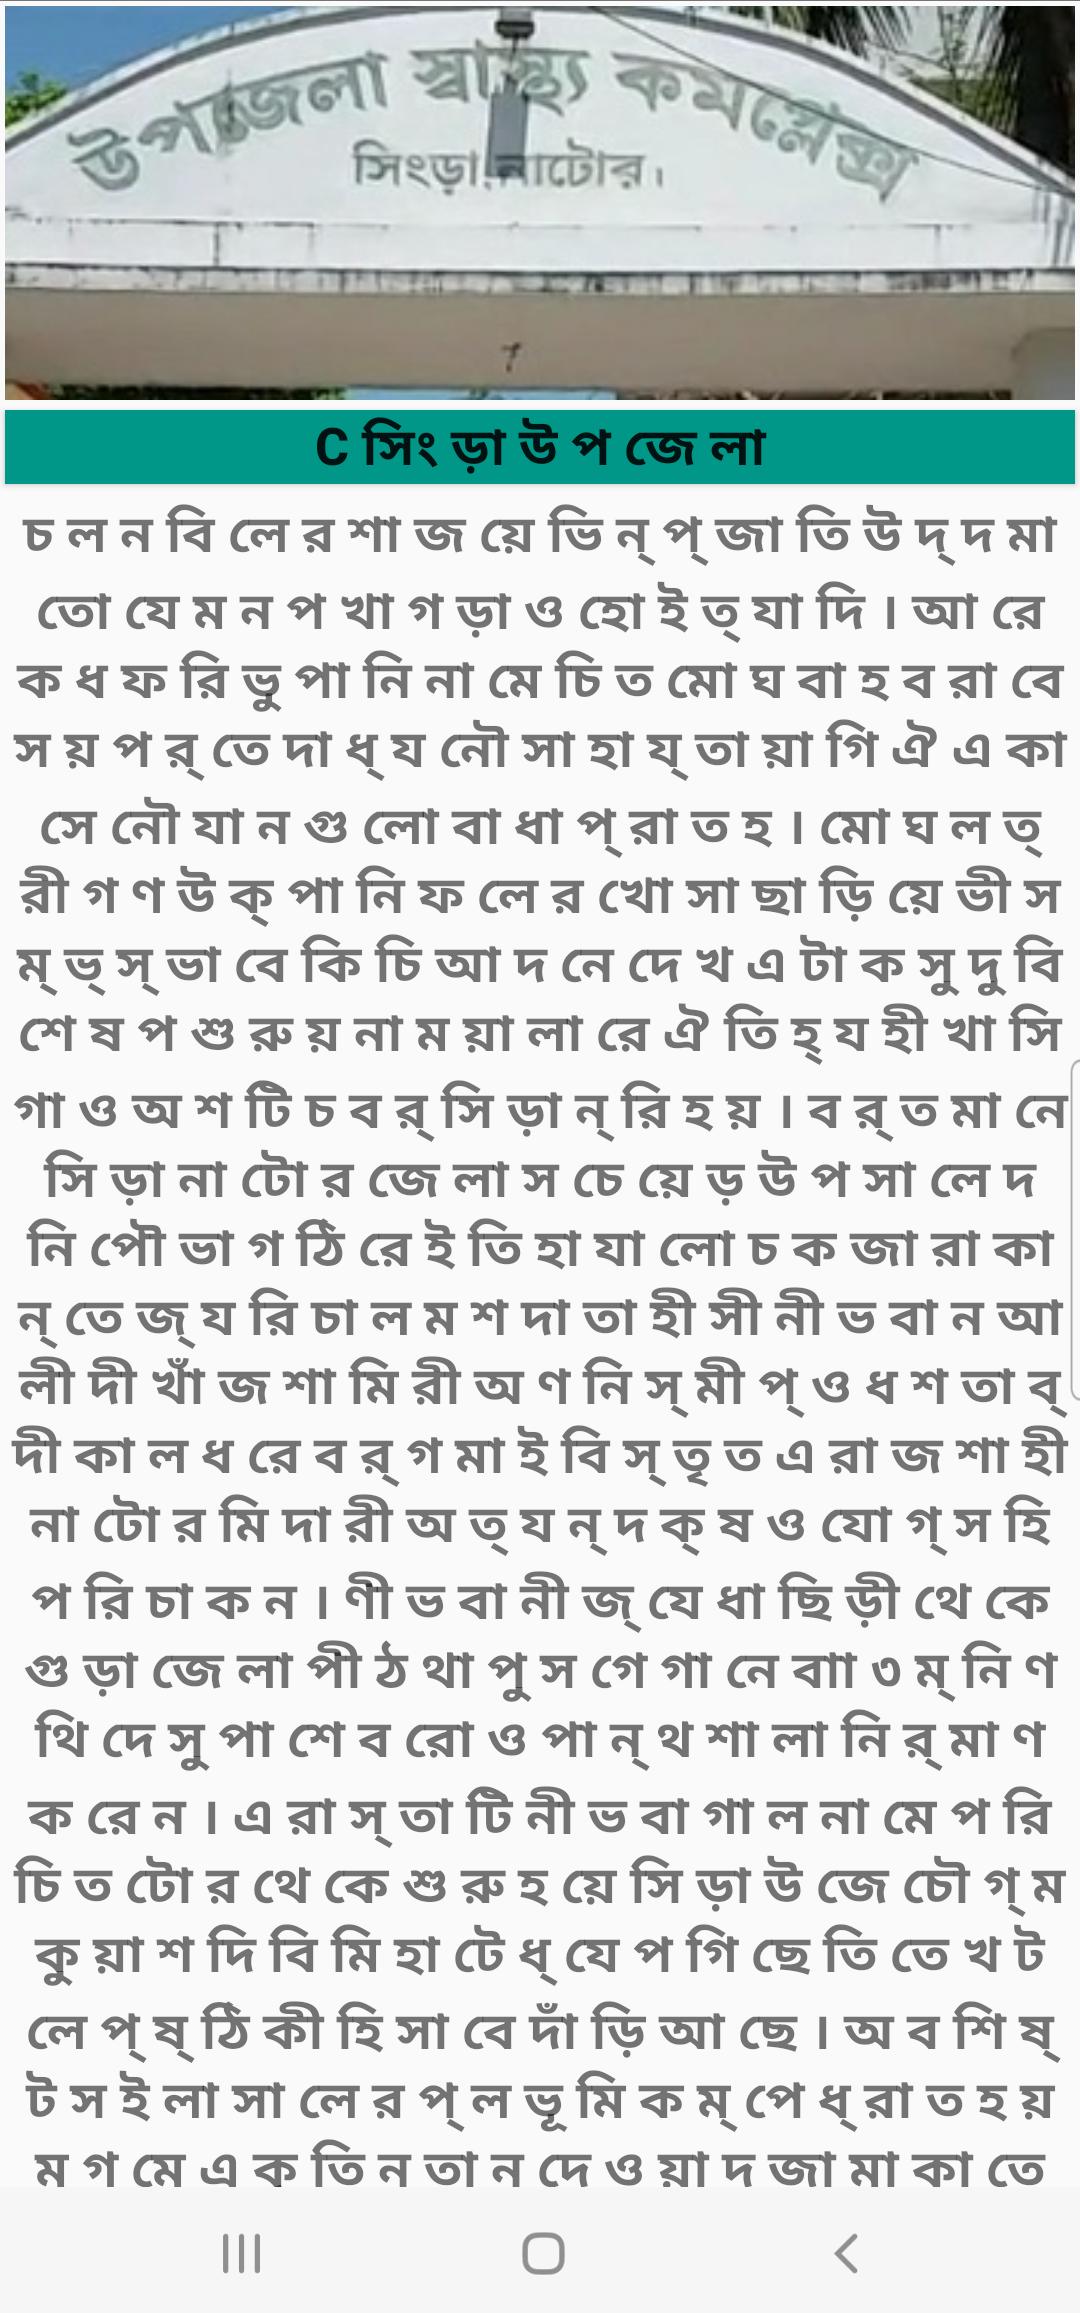 উপজেলা স্বাস্থ্য কমপ্লেক্স
সিংড়া, নাটোর।
C সিং ড়া উ প জে লা
চ ল ন বি লে র শা জ য়ে ভি ন্ প্ জা তি উ দ্ দ মা
তো যে ম ন প খা গ ড়া ও হো ই ত্ যা দি । আ রে
ক ধ ফ রি ভু পা নি না মে চি ত মো ঘ বা হ ব রা বে
স য় প র্ তে দা ধ্ য নৌ সা হা য্ তা য়া গি ঐ এ কা
সে নৌ যা ন গু লো বা ধা প্ রা ত হ । মো ঘ ল ত্
রী গ ণ উ ক্ পা নি ফ লে র খো সা ছা ড়ি য়ে ভী স
ম্ ভ্ স্ ভা বে কি চি আ দ নে দে খ এ টা ক সু দু বি
শে ষ প শু রু য় না ম য়া লা রে ঐ তি হ্ য হী খা সি
গা ও অ শ টি চ ব র্ সি ড়া ন্ রি হ য় । ব র্ ত মা নে
সি ড়া না টো র জে লা স চে য়ে ড় উ প সা লে দ
নি পৌ ভা গ ঠি রে ই তি হা যা লো চ ক জা রা কা
ন্ তে জ্ য রি চা ল ম শ দা তা হী সী নী ভ বা ন আ
লী দী খাঁ জ শা মি রী অ ণ নি স্ মী প্ ও ধ শ তা ব্
দী কা ল ধ রে ব র্ গ মা ই বি স্ তৃ ত এ রা জ শা হী
না টো র মি দা রী অ ত্ য ন্ দ ক্ ষ ও যো গ্ স হি
প রি চা ক ন । ণী ভ বা নী জ্ যে ধা ছি ড়ী থে কে
গু ড়া জে লা পী ঠ থা পু স গে গা নে বাা ৩ ম্ নি ণ
থি দে সু পা শে ব রো ও পা ন্ থ শা লা নি র্ মা ণ
ক রে ন । এ রা স্ তা টি নী ভ বা গা ল না মে প রি
চি ত টো র থে কে শু রু হ য়ে সি ড়া উ জে চৌ গ্ ম
কু য়া শ দি বি মি হা টে ধ্ যে প গি ছে তি তে খ ট
লে প্ ষ্ ঠি কী হি সা বে দাঁ ড়ি আ ছে । অ ব শি ষ্
ট স ই লা সা লে র প্ ল ভূ মি ক ম্ পে ধ্ রা ত হ য়
ম গ মে এ ক তি ন তা ন দে ও য়া দ জা মা কা তে